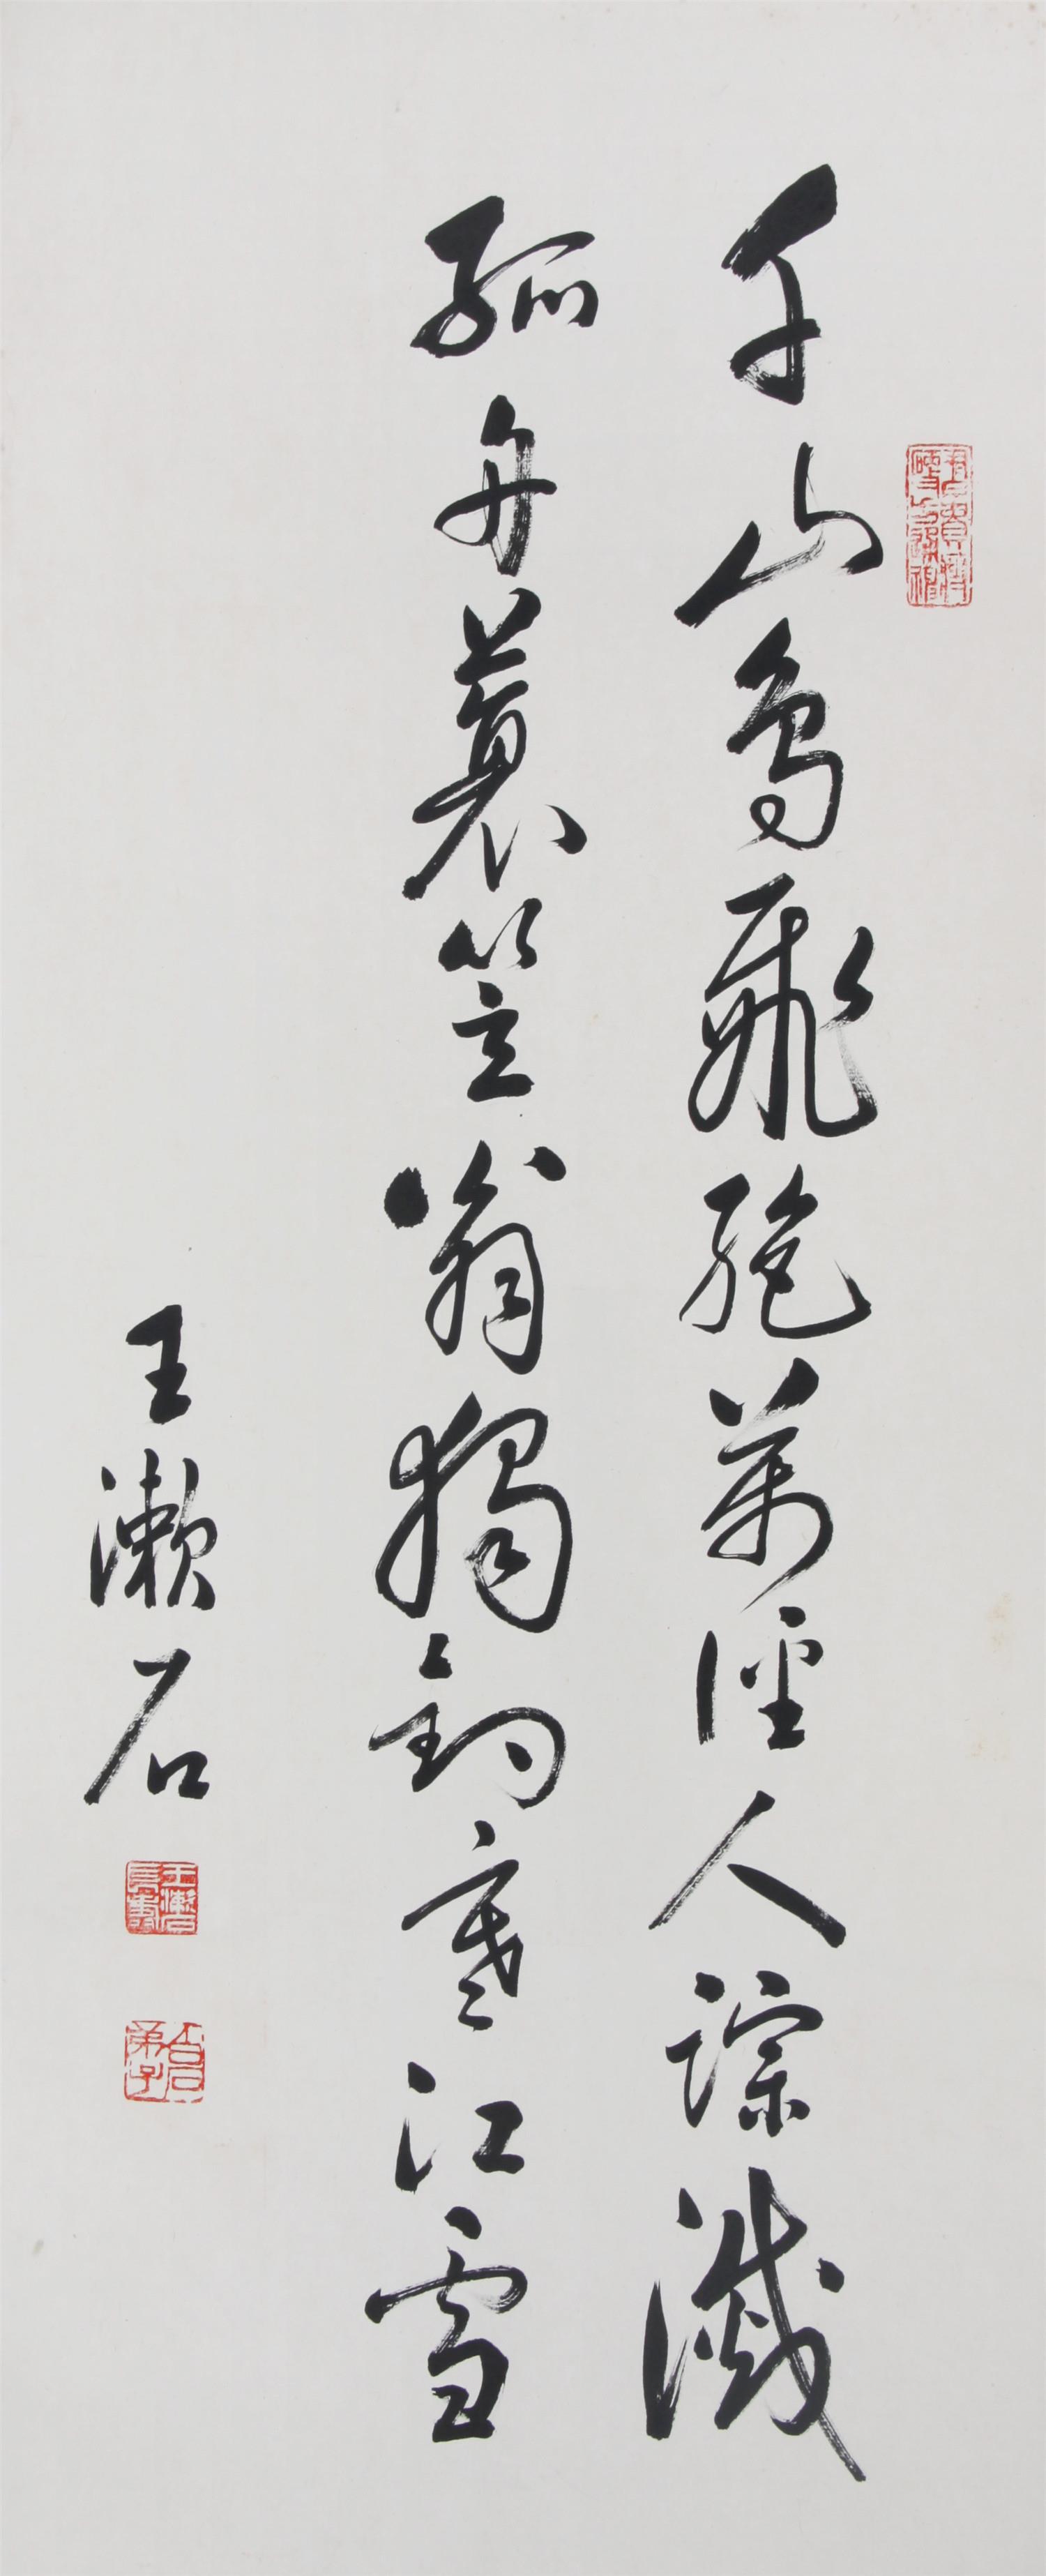 千山鳥飛絕萬徑人蹤滅
孤舟蓑笠翁獨釣寒江雪
王漱石